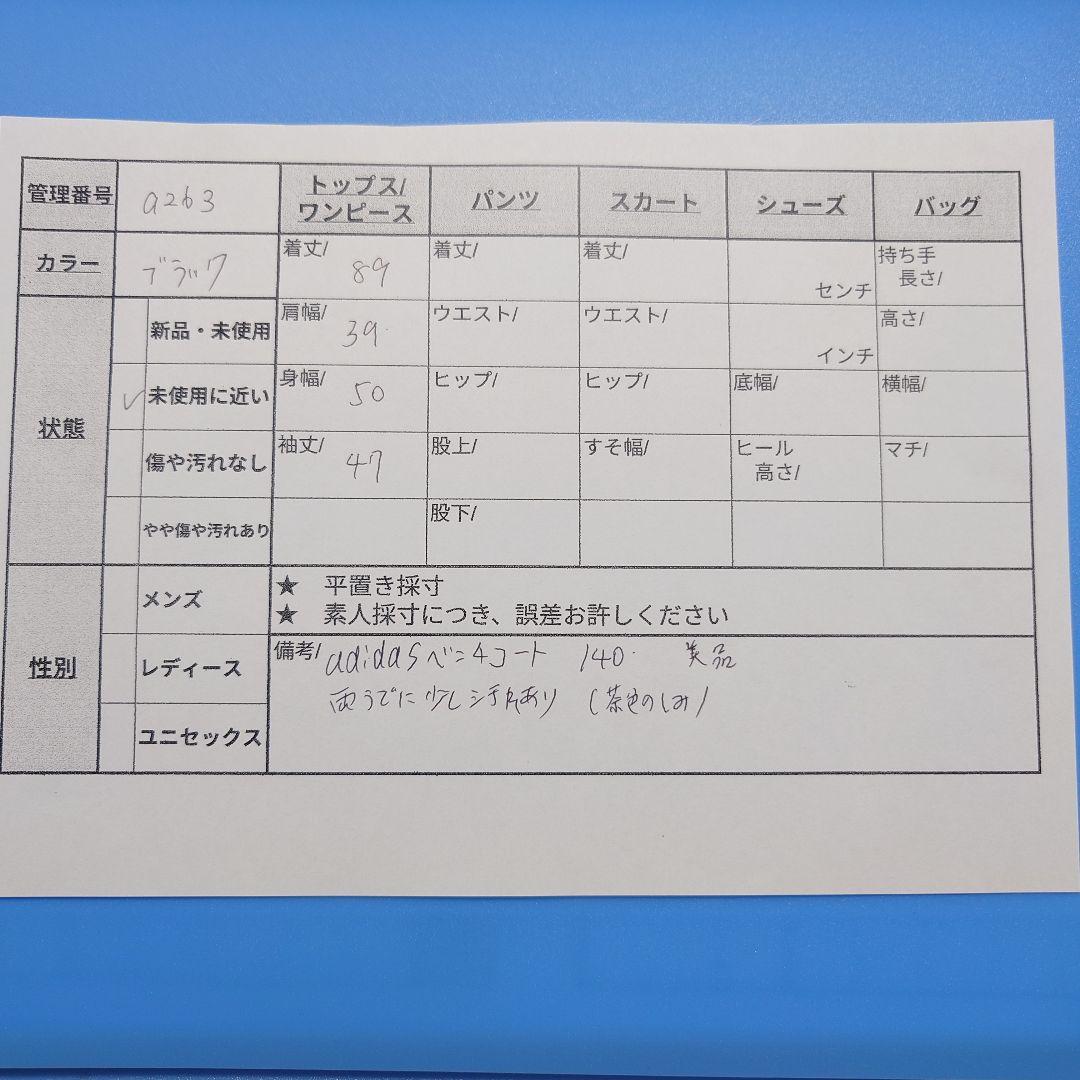 管理番号 a263 トップス/ワンピース パンツ スカート シューズ バッグ
カラー ブラック 着丈/ 89 着丈/ 着丈/ センチ 持ち手長さ/
状態 新品・未使用 肩幅/ 39 ウエスト/ ウエスト/ インチ 高さ/
✓ 未使用に近い 身幅/ 50 ヒップ/ ヒップ/ 底幅/ 横幅/
傷や汚れなし 袖丈/ 47 股上/ すそ幅/ ヒール高さ/ マチ/
やや傷や汚れあり 股下/
性別 メンズ ★ 平置き採寸
★ 素人採寸につき、誤差お許しください
レディース 備考/ adidasベンチコート 140 美品
両うでに少し汚れあり (茶色のしみ)
ユニセックス